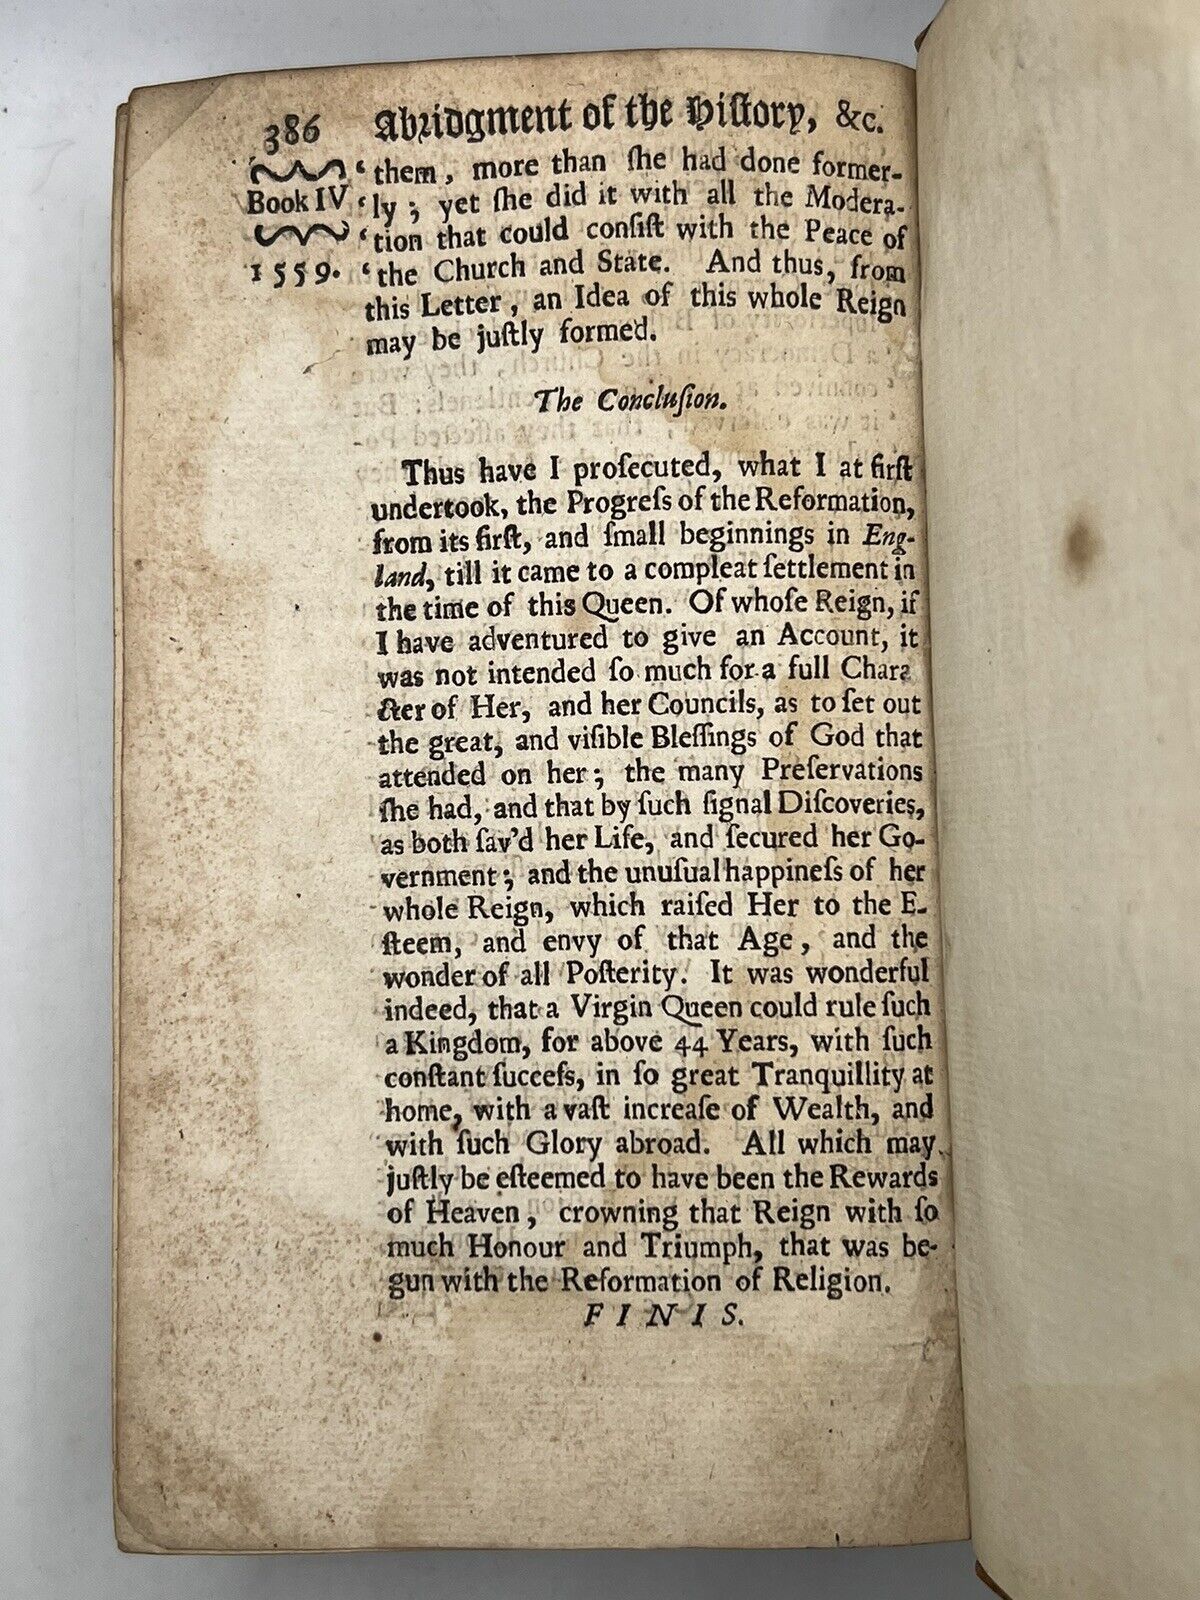 386 Abridgment of the Hiſtory, &c.
‘them, more than ſhe had done former-
Book IV. ‘ly; yet ſhe did it with all the Modera-
‘tion that could conſiſt with the Peace of
1559. ‘the Church and State. And thus, from
this Letter, an Idea of this whole Reign
may be juſtly formed.
The Concluſion.
Thus have I proſecuted, what I at firſt
undertook, the Progreſs of the Reformation,
from its firſt, and ſmall beginnings in Eng-
land, till it came to a compleat ſettlement in
the time of this Queen. Of whoſe Reign, if
I have adventured to give an Account, it
was not intended ſo much for a full Chara
cter of Her, and her Councils, as to ſet out
the great, and viſible Bleſſings of God that
attended on her; the many Preſervations
ſhe had, and that by ſuch ſignal Diſcoveries,
as both ſav'd her Life, and ſecured her Go-
vernment; and the unuſual happineſs of her
whole Reign, which raiſed Her to the E-
ſteem, and envy of that Age, and the
wonder of all Poſterity. It was wonderful
indeed, that a Virgin Queen could rule ſuch
a Kingdom, for above 44 Years, with ſuch
conſtant ſucceſs, in ſo great Tranquillity at
home, with a vaſt increaſe of Wealth, and
with ſuch Glory abroad. All which may
juſtly be eſteemed to have been the Rewards
of Heaven, crowning that Reign with ſo
much Honour and Triumph, that was be-
gun with the Reformation of Religion.
FINIS.